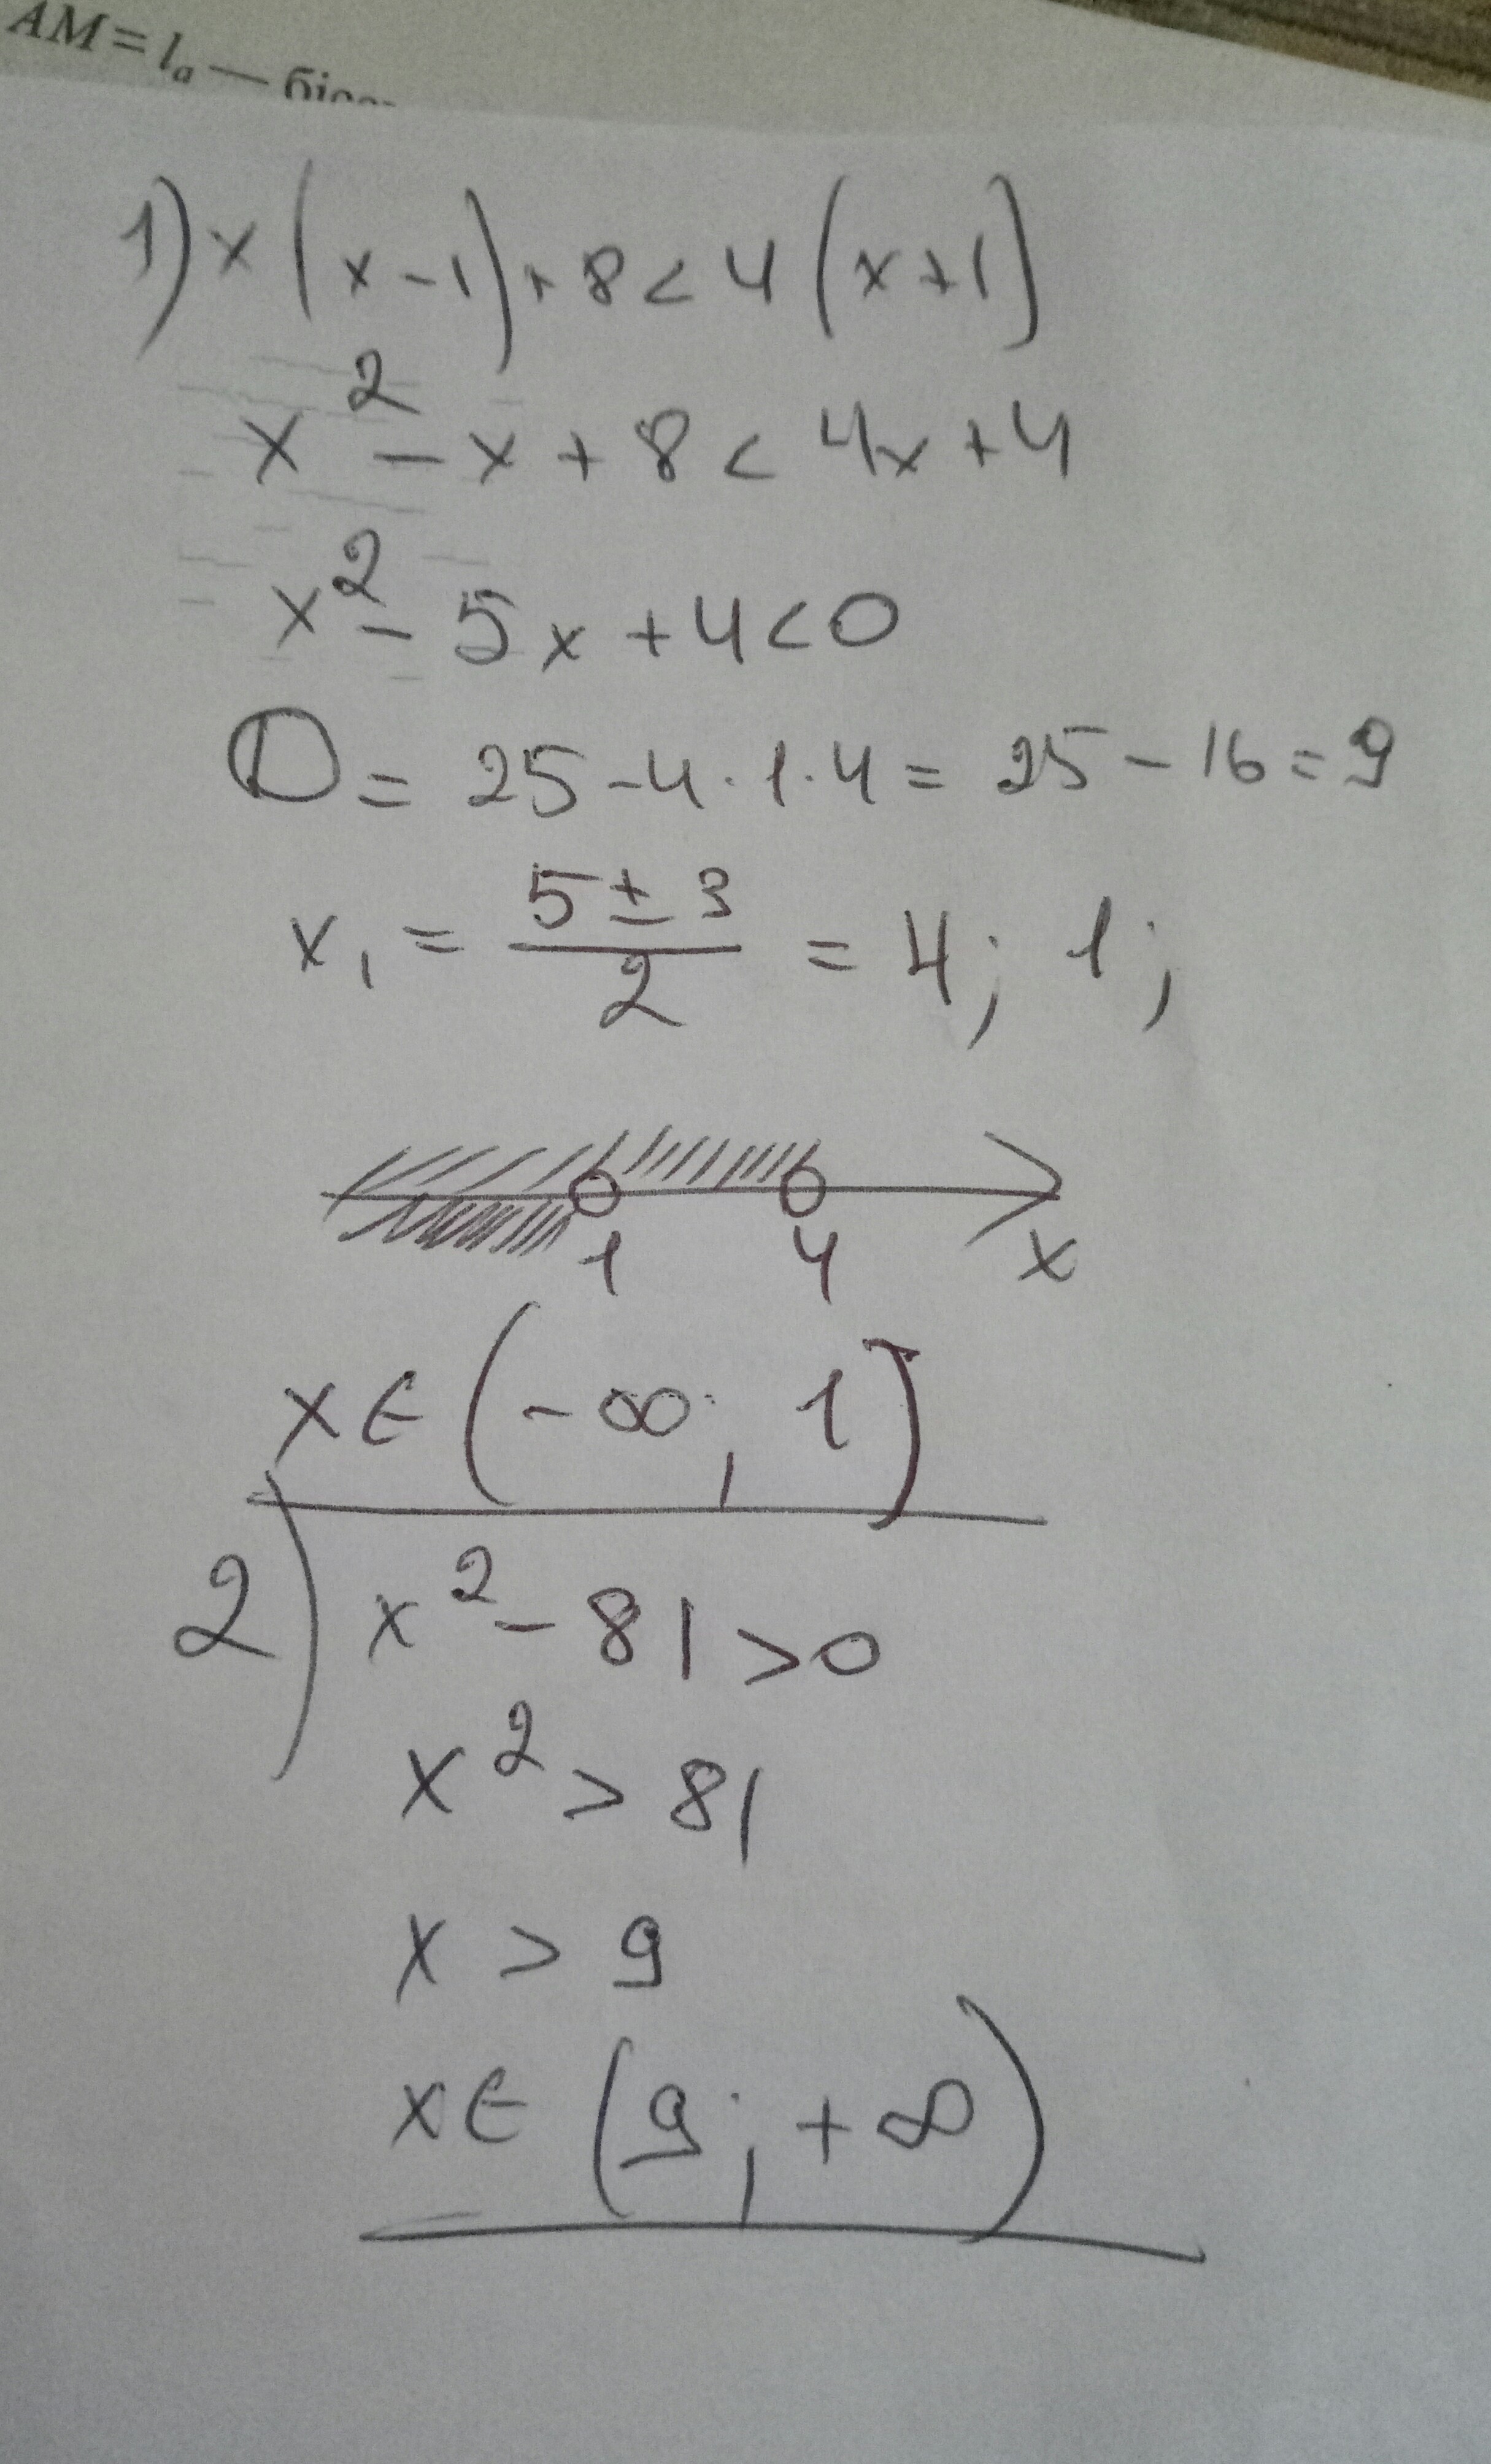 AM = lₐ —
1) x(x-1)+8<4(x+1)
x²-x+8<4x+4
x²-5x+4<0
D=25-4·1·4=25-16=9
x₁ = (5±3)/2 = 4; 1;
1 4 x
x∈(-∞; 1]
2) x²-81>0
x²>81
x > 9
x∈(9; +∞)